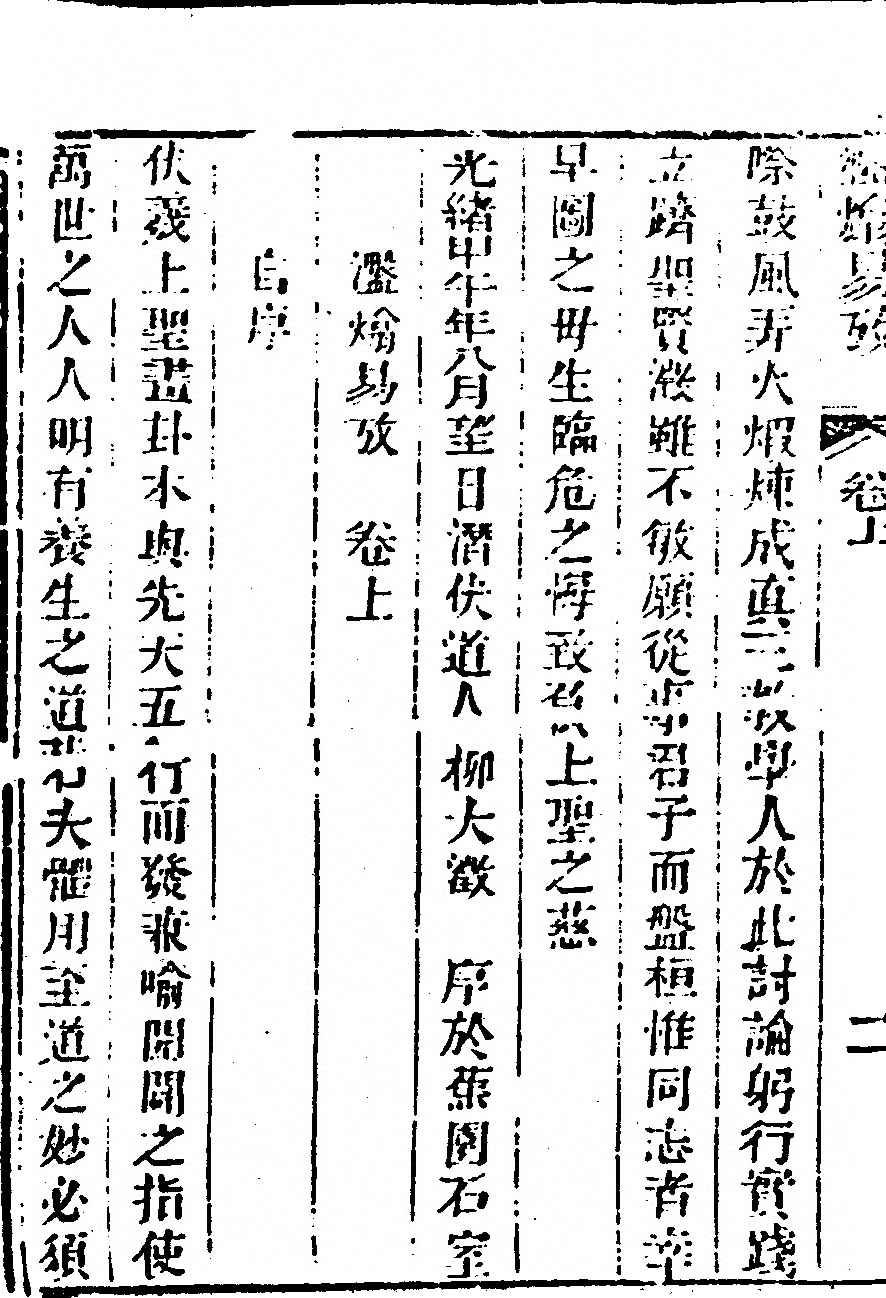 易攷 卷上 二
嗓鼓風弄火煆煉成真三教學人於此討論躬行實踐
立躋聖賢濲雖不敏願從事君子而盤桓惟同志者幸
早圖之毋生臨危之悔致負上聖之慈
光緒甲午年八月望日潛伏道人 柳大澂 序於蕉園石室
瀊熻易攷 卷上
自序
伏羲上聖畫卦本與先天五行而發兼喻開闢之指使
萬世之人人明有養生之道若夫體用至道之妙必須